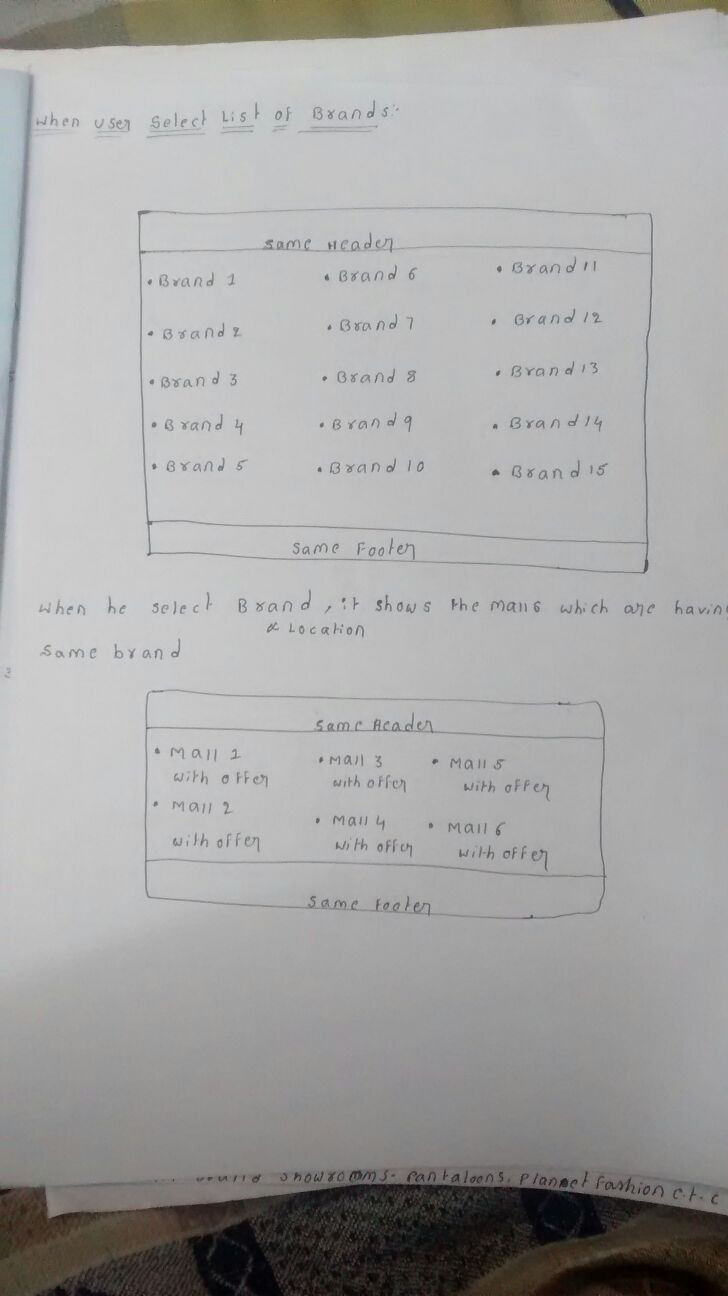 When user Select List of Brands:-
Same Header
• Brand 1 • Brand 6 • Brand 11
• Brand 2 • Brand 7 • Brand 12
• Brand 3 • Brand 8 • Brand 13
• Brand 4 • Brand 9 • Brand 14
• Brand 5 • Brand 10 • Brand 15
Same Footer
When he select Brand, it shows the malls which are having
& Location
Same brand
Same Header
• Mall 1 • Mall 3 • Mall 5
with offer with offer with offer
• Mall 2 • Mall 4 • Mall 6
with offer with offer with offer
Same Footer
showrooms- Pantaloons, Plannet fashion e.t.c